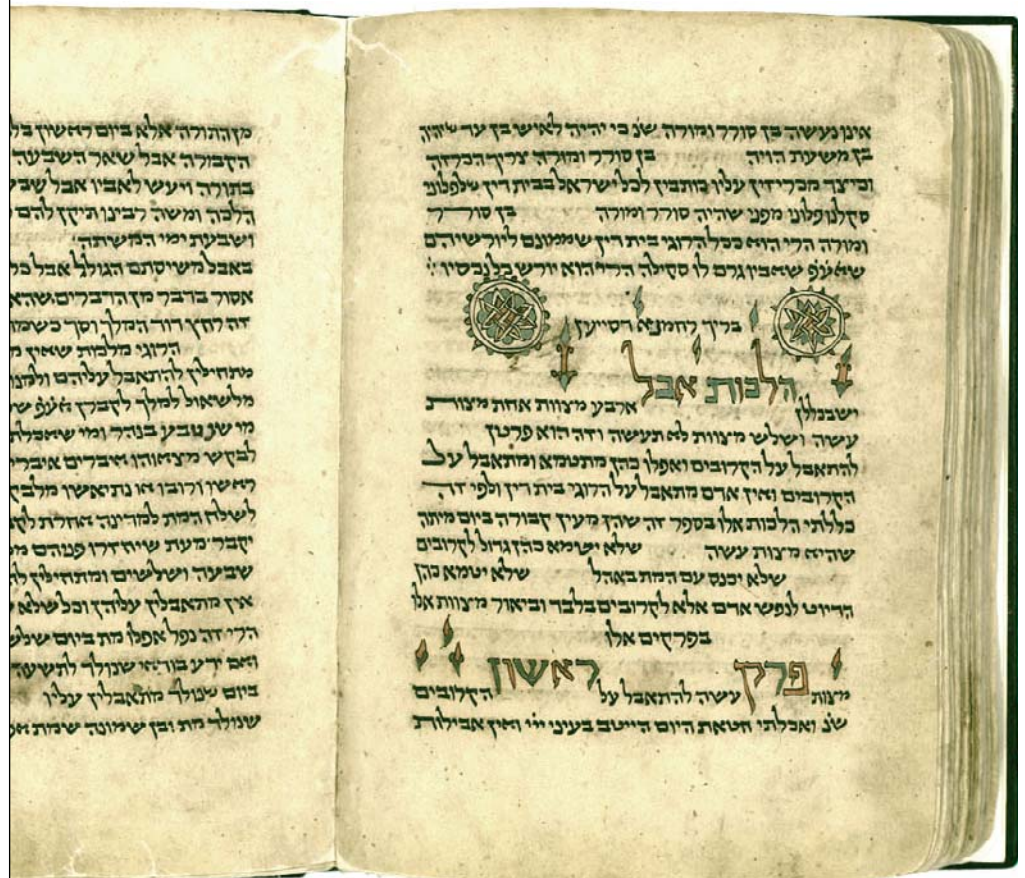 אינו נעשה בן סורר ומורה שנ׳ כי יהיה לאיש בן עד שיהיה
בן משעת הויה בן סורר ומורה צריך הכרזה
וכיצד מכריזין עליו כותבין לכל ישראל בבית דין שלפלוני
סקלנו פלוני מפני שהיה סורר ומורה בן סורר
ומורה הרי הוא ככל הרוגי בית דין שממונם ליורשיהם
שאע׳פ שאביו גרם לו סקילה הרי הוא יורש כל נכסיו
בריך רחמנא דסייען
הלכות אבל
ישבכללן ארבע מצוות אחת מצות
עשה ושלש מצוות לא תעשה וזה הוא פרטן
להתאבל על הקרובים ואפלו כהן מתטמא ומתאבל על
הקרובים ואין אדם מתאבל על הרוגי בית דין ולפי זה
כללתי הלכות אלו בספר זה שהן מעין קבורה ביום מיתה
שהיא מצות עשה שלא יטמא כהן גדול לקרובים
שלא יכנס עם המת באהל שלא יטמא כהן
הדיוט לנפש אדם אלא לקרובים בלבד וביאור מצוות אלו
בפרקים אלו
פרק ראשון
מצות עשה להתאבל על הקרובים
שנ׳ ואכלתי חטאת היום הייטב בעיני ייי ואין אבילות
מן התורה אלא ביום ראשון בל
הקבורה אבל שאר השבעה
בתורה ויעש לאביו אבל שבע
הלכה ומשה רבינו תיקן להם
ושבעת ימי המשתה
באבל משיסתם הגולל אבל כל
אסור בדבר מן הדברים שהא
זה רחץ דוד המלך וסך כשמת
הרוגי מלכות שאין מ
מתחילין להתאבל עליהם ולמנו
מלשאול למלך לקברן אע׳פ ש
מי שנטבע בנהר ומי שאכלת
לבקש מצאוהו איברים איברי
ראשו ורובו או נתיאשו מלבק
לשלח המת למדינה אחרת לק
יקבר מעת שיחזרו פניהם מ
שבעה ושלשים ומתחילין לה
אין מתאבלין עליהן וכל שלא
הרי זה נפל אפלו מת ביום שלש
ואם ידע בודאי שנולד לתשעה
ביום שנולד מתאבלין עליו
שנולד מת ובן שמונה שמת א